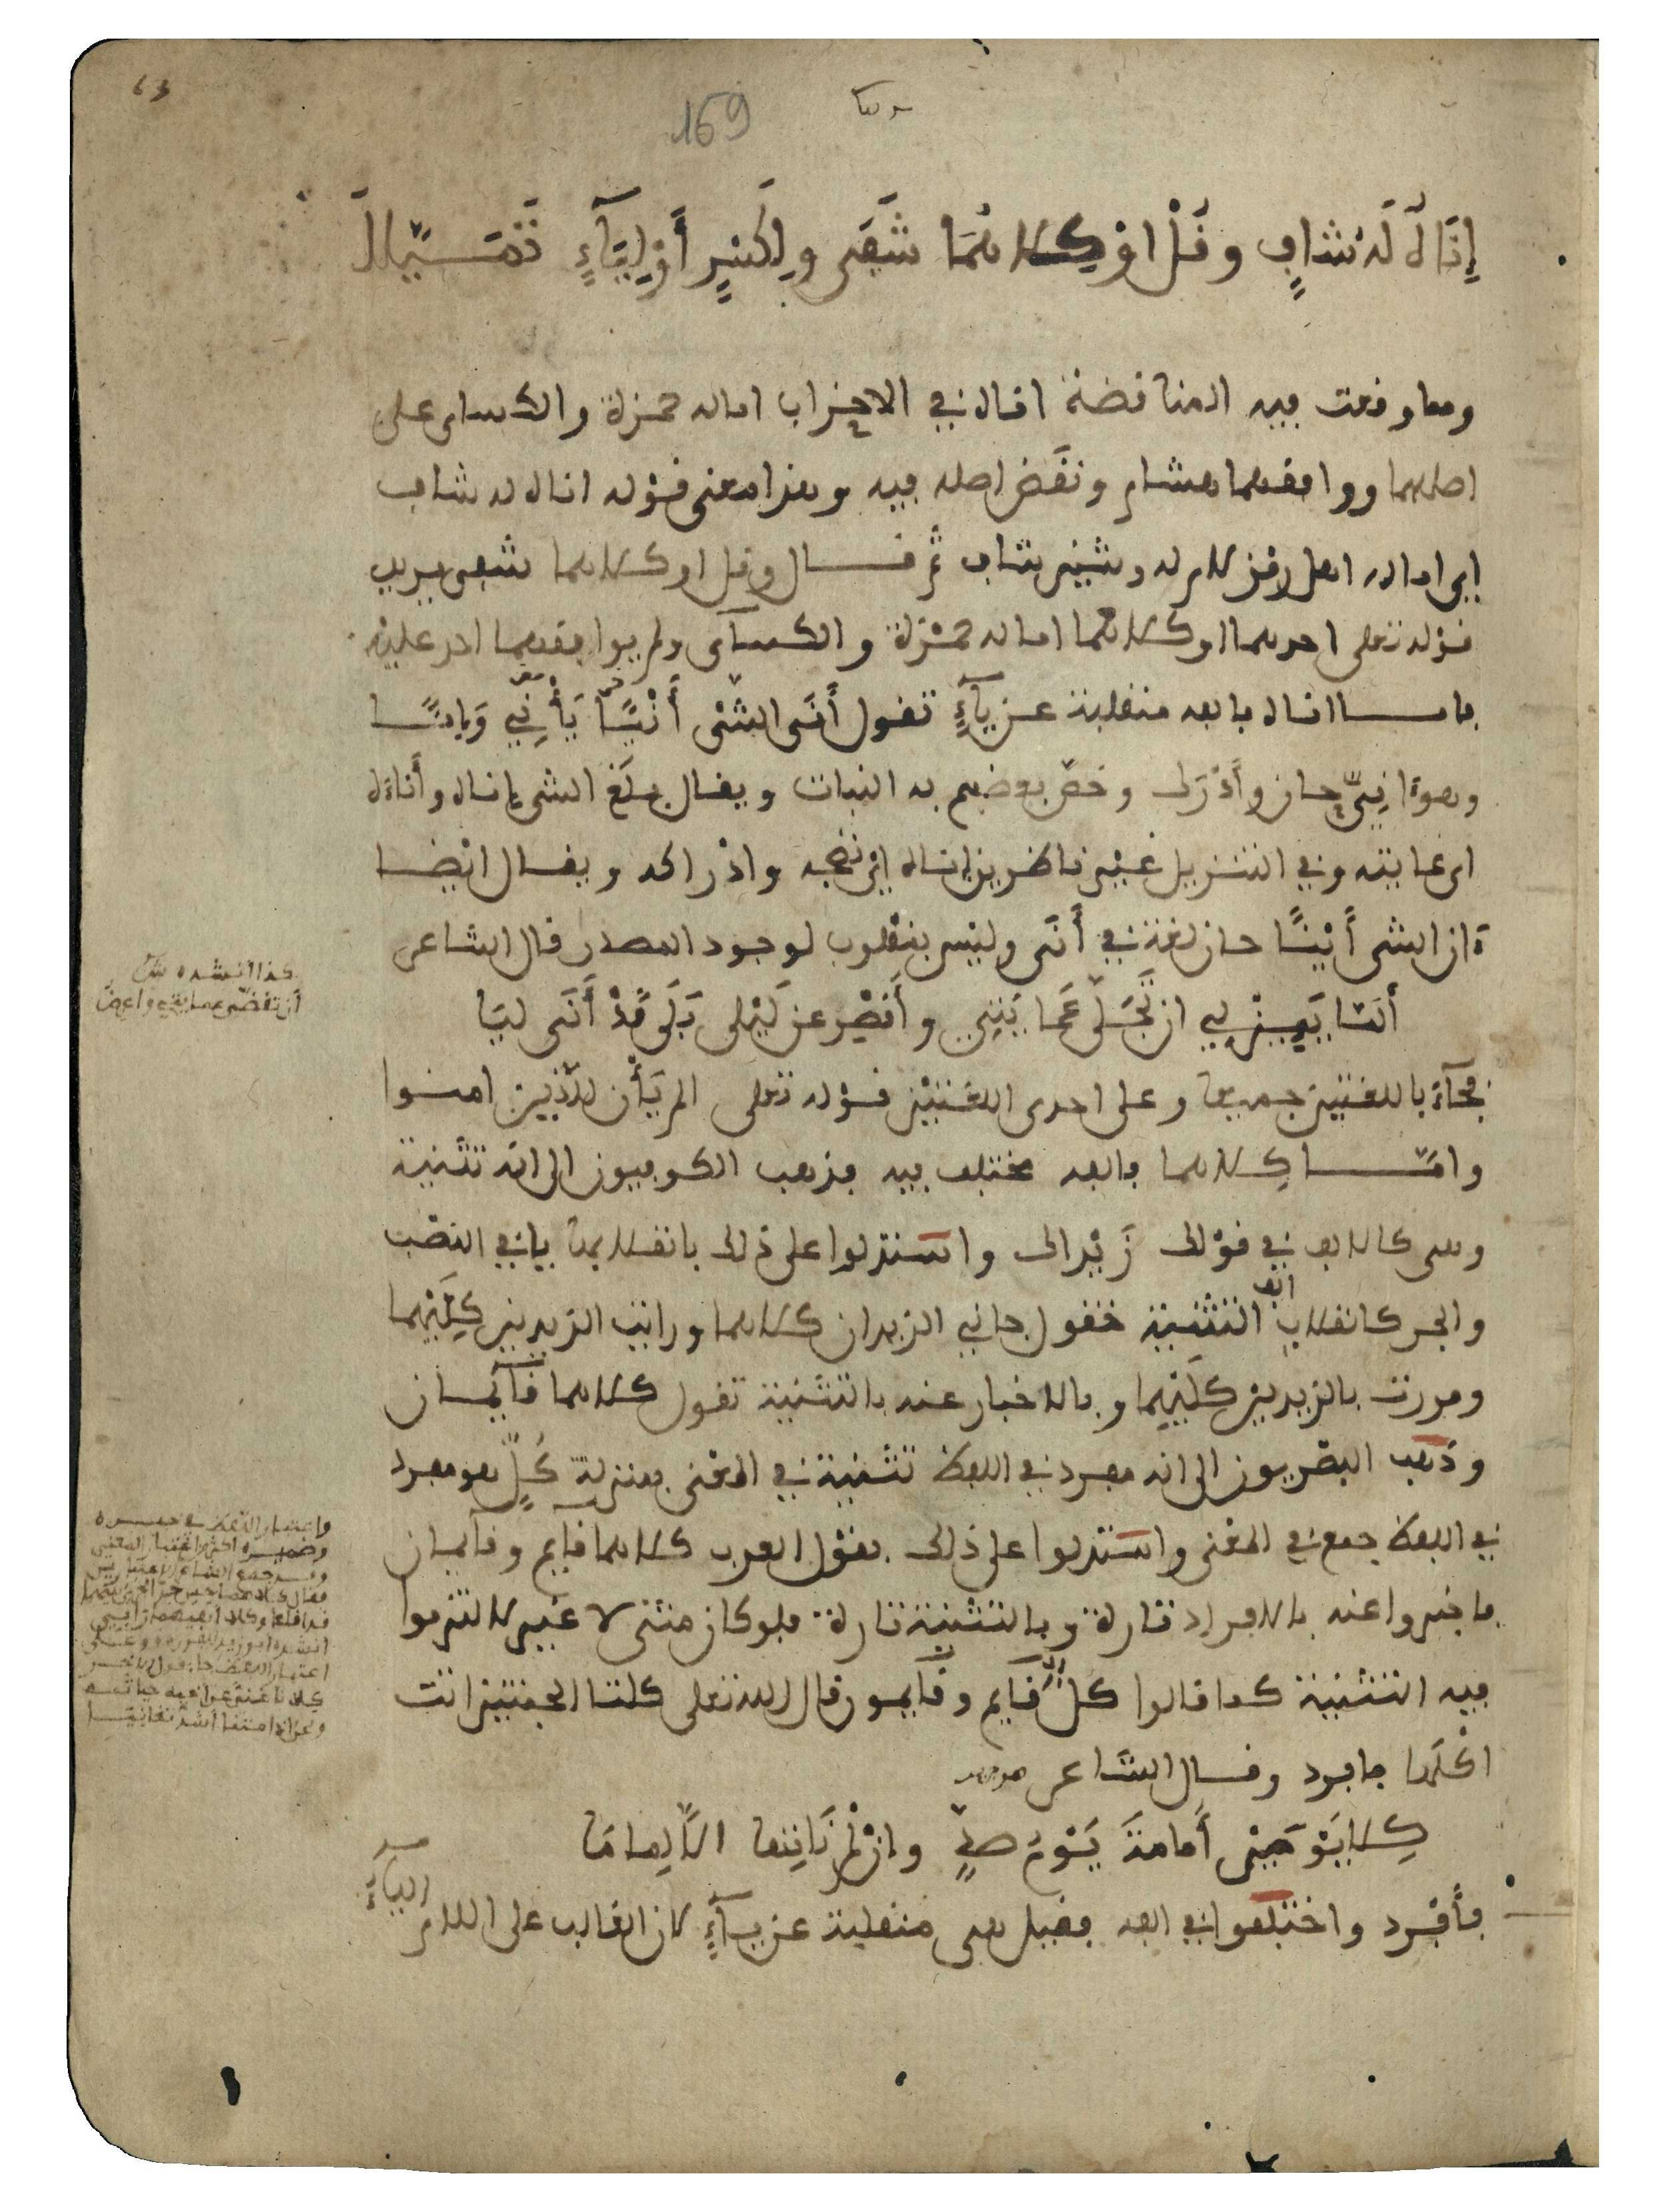 63
169
إِنَاهُ لَهُ شَافٍ وَقُلْ اوْ كِلَاهُمَا شَفَى وَلِكَسْرٍ أَوْ لِيَآءٍ تَمَيَّلَا
ومما وقعت فيه المناقضة اناه في الاحزاب اماله حمزة والكساى على
اصلهما ووافقهما هشام ونقَض اصله فيه وهذا معنى قوْله اناه له شاف
اى اماله اهل رمز لام له وشين شاف ثم قال وقل او كلاهما شفى يريد
قوْله تعلى احدهما او كلاهما اماله حمْزة والكسآى ولم يوافقهما احد عليْه
فاما اناه فالفه منقلبة عن يآءٍ تقول أَنَى الشىْء أَنْيًا يَأْنِي وَإِنًا
وهو ءانِيٌّ حان وأدْرَك وخصّ بعضهم به النبات ويقال بلَغ الشى إناه وأناه
اى غايته وفي التنزيل غيْر ناظرين إناه اىْ نضجه وادْراكه ويقال ايْضا
ءان الشى أَيْنًا حان لغة في أَنَى وليْس بمقْلوب لوجود المصدر قال الشاعر
أَلَمَّا يَئِنْ لِي ان تُجَلَّى عَمَايَتِي وأَقْصُر عن لَيْلى بَلَى قَدْ أَنَى لِيَا
فجآء باللغتين جميعا وعلى احدى اللغتيْن قوْله تعلى الم يَأْن للّذين امنوا
وامّا كِلاهما فالفه مختلف فيه فذهب الكوفيون الى انه تثنية
وهى كالالف في قوْلك زَيْدَاك واستدلوا على ذلك بانقلابها يا في النصْب
والجر كانقلاب الف التثْنية فتقول جاني الزيدان كلاهما ورايْت الزيديْن كِلَيْهما
ومررت بالزيديْن كلَيْهِما وبالاخبار عنه بالتثنية تقول كلاهما قآئمان
وذهب البصْريون الى انه مفرد في اللفظ تثنية في المعْنى بمنزلة كُلٍّ هو مفرد
في اللفظ جمع في المعْنى واستدلوا على ذلك بقوْل العرب كلاهما قايم وقآيمان
فاخبروا عنه بالافراد تارة وبالتثنية تارة فلو كان مثنى لا غير لالتزموا
فيه التثنية كما قالوا كلٌّ قآيم وقآيمون قال الله تعلى كلتا الجنتيْن اتت
اكْلَها فافرد وقال الشاعر
كِلا يَوْمَيْ أُمَامَةَ يَوْمُ صَدٍّ وانْ لم نَاتِها الَّا لِماما
فأفْرد واختلفوا في الفه فقيل هى منقلبة عن يآءٍ لان الغالب على اللام اليآء
كذا انشده ش
أن تقضّى عمايتي واعرض
واعتبار اللفظ في خبره
وضميره اكثر من اعتبار المعنى
وقد جمع الشاعر الاعتبارين
فقال كلاهما حين جدّ الجرى بينهما
قد اقلعا وكلا انفيهما رابي
انشده ابو زيد في نوادره وعلى
اعتبار اللفظ جاء قول الاخر
كلانا غني عن اخيه حياته
ونحن اذا متنا اشدّ تغانيا